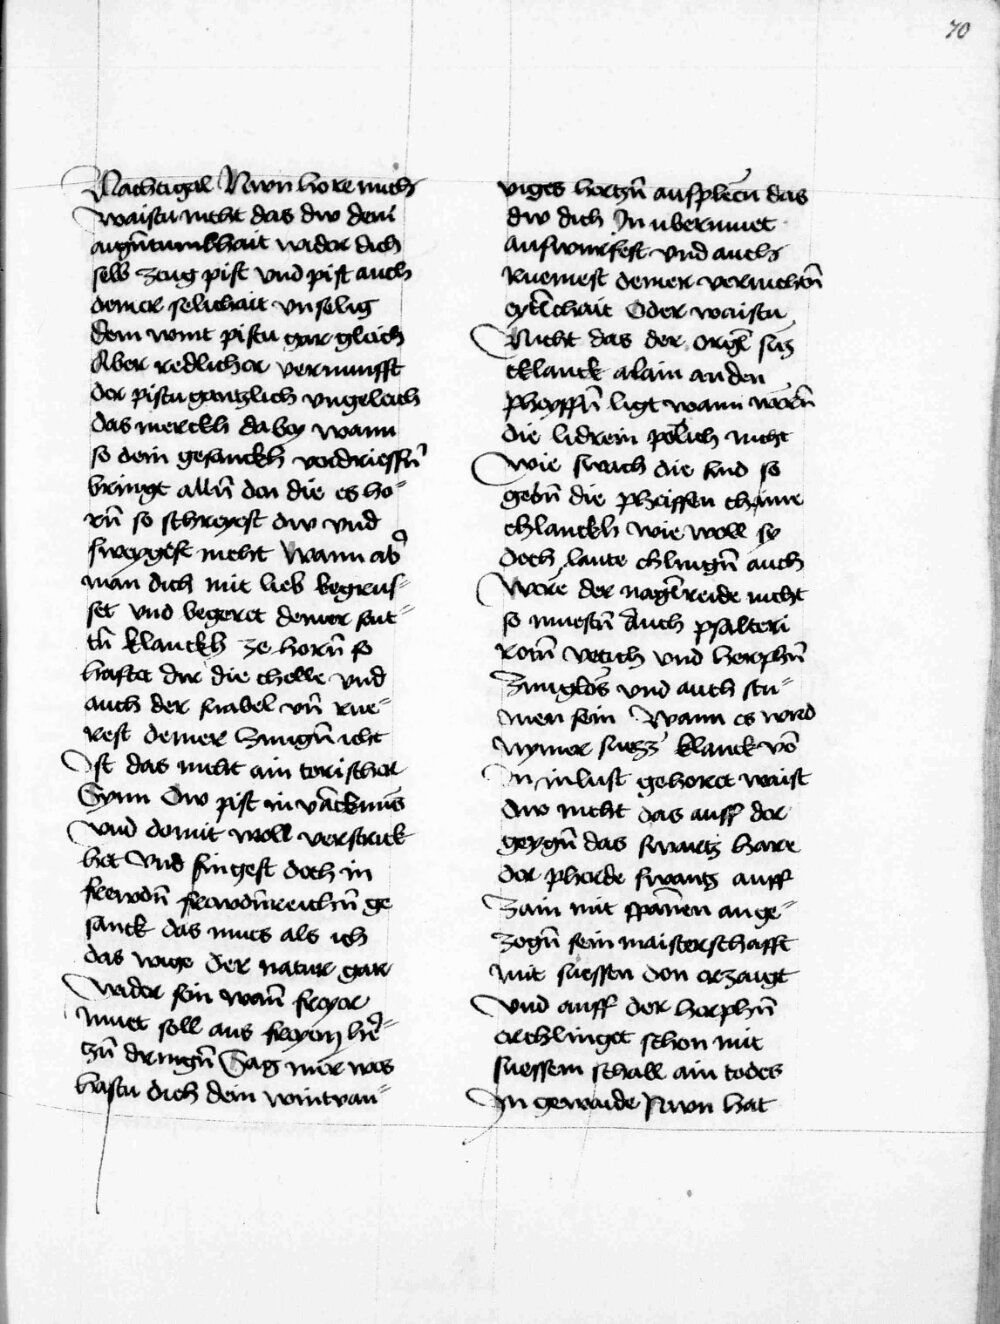 70
Nachtigal Nwn hore mich
waistu nicht das dw dein
augn̄tumbhait wider dich
selb zeug pist vnd pist auch
deiner selichait vnselig
dem wint pistu gar gleich
Aber redlicher vernunfft
der pistu gantzlich vngeleich
das merckh da bey wann
so dein gesanckh verdriessn̄
bringt alln̄ den die es ho⸗
rn̄ so schreyest dw vnd
sweygest nicht Wann ab̄
man dich mit lieb begrus⸗
set vnd begeret deiner sait⸗
tn̄ klanckh ze horn̄ so
haftet dir die chelle vnd
auch der snabel vn̄ rue⸗
rest deiner Zungn̄ icht
Ist das nicht ain torischer
Synn Dw pist in vāckmus
vnd domit woll verstrick
het Vnd singest doch in
frewdn̄ frewdn̄reichn̄ ge
sanck das mues als ich
das wige der natur gar
wider sein wan̄ freyer
muet soll aus freyem he⸗
tzn̄ dringn̄ Sag mir was
hastu dich dein wintvan⸗
viges hertzn̄ aufplecn̄ das
dw dich In vbermuet
aufwurfest vnd auch
ruemest deiner vernichtn̄
eytl̄chait Oder waistu
Nicht das der orgl̄ suz
cklanck alain an den
pheyffn̄ ligt wann wern̄
die lidrein pelich nicht
wie swach die sind so
gebn̄ die pheiffen chaine
chlanckh wie woll sy
doch laute chlingn̄ auch
Were der nagl̄reide nicht
so muestn̄ Auch psalteri
rotn̄ vetich vnd herphn̄
Zunglos vnd auch stu⸗
men sein Wann es wird
nymer suezz klanck vō
In in lust gehoret waist
dw nicht das auff der
geygn̄ das swartz hare
der pherde swantz auff
Zain mit spānen ange⸗
zogn̄ sein maisterschafft
mit suessen don erzaigt
Vnd auff der herphn̄
erchlinget schon mit
suessem schall ain todes
In gewaide Nwn hat